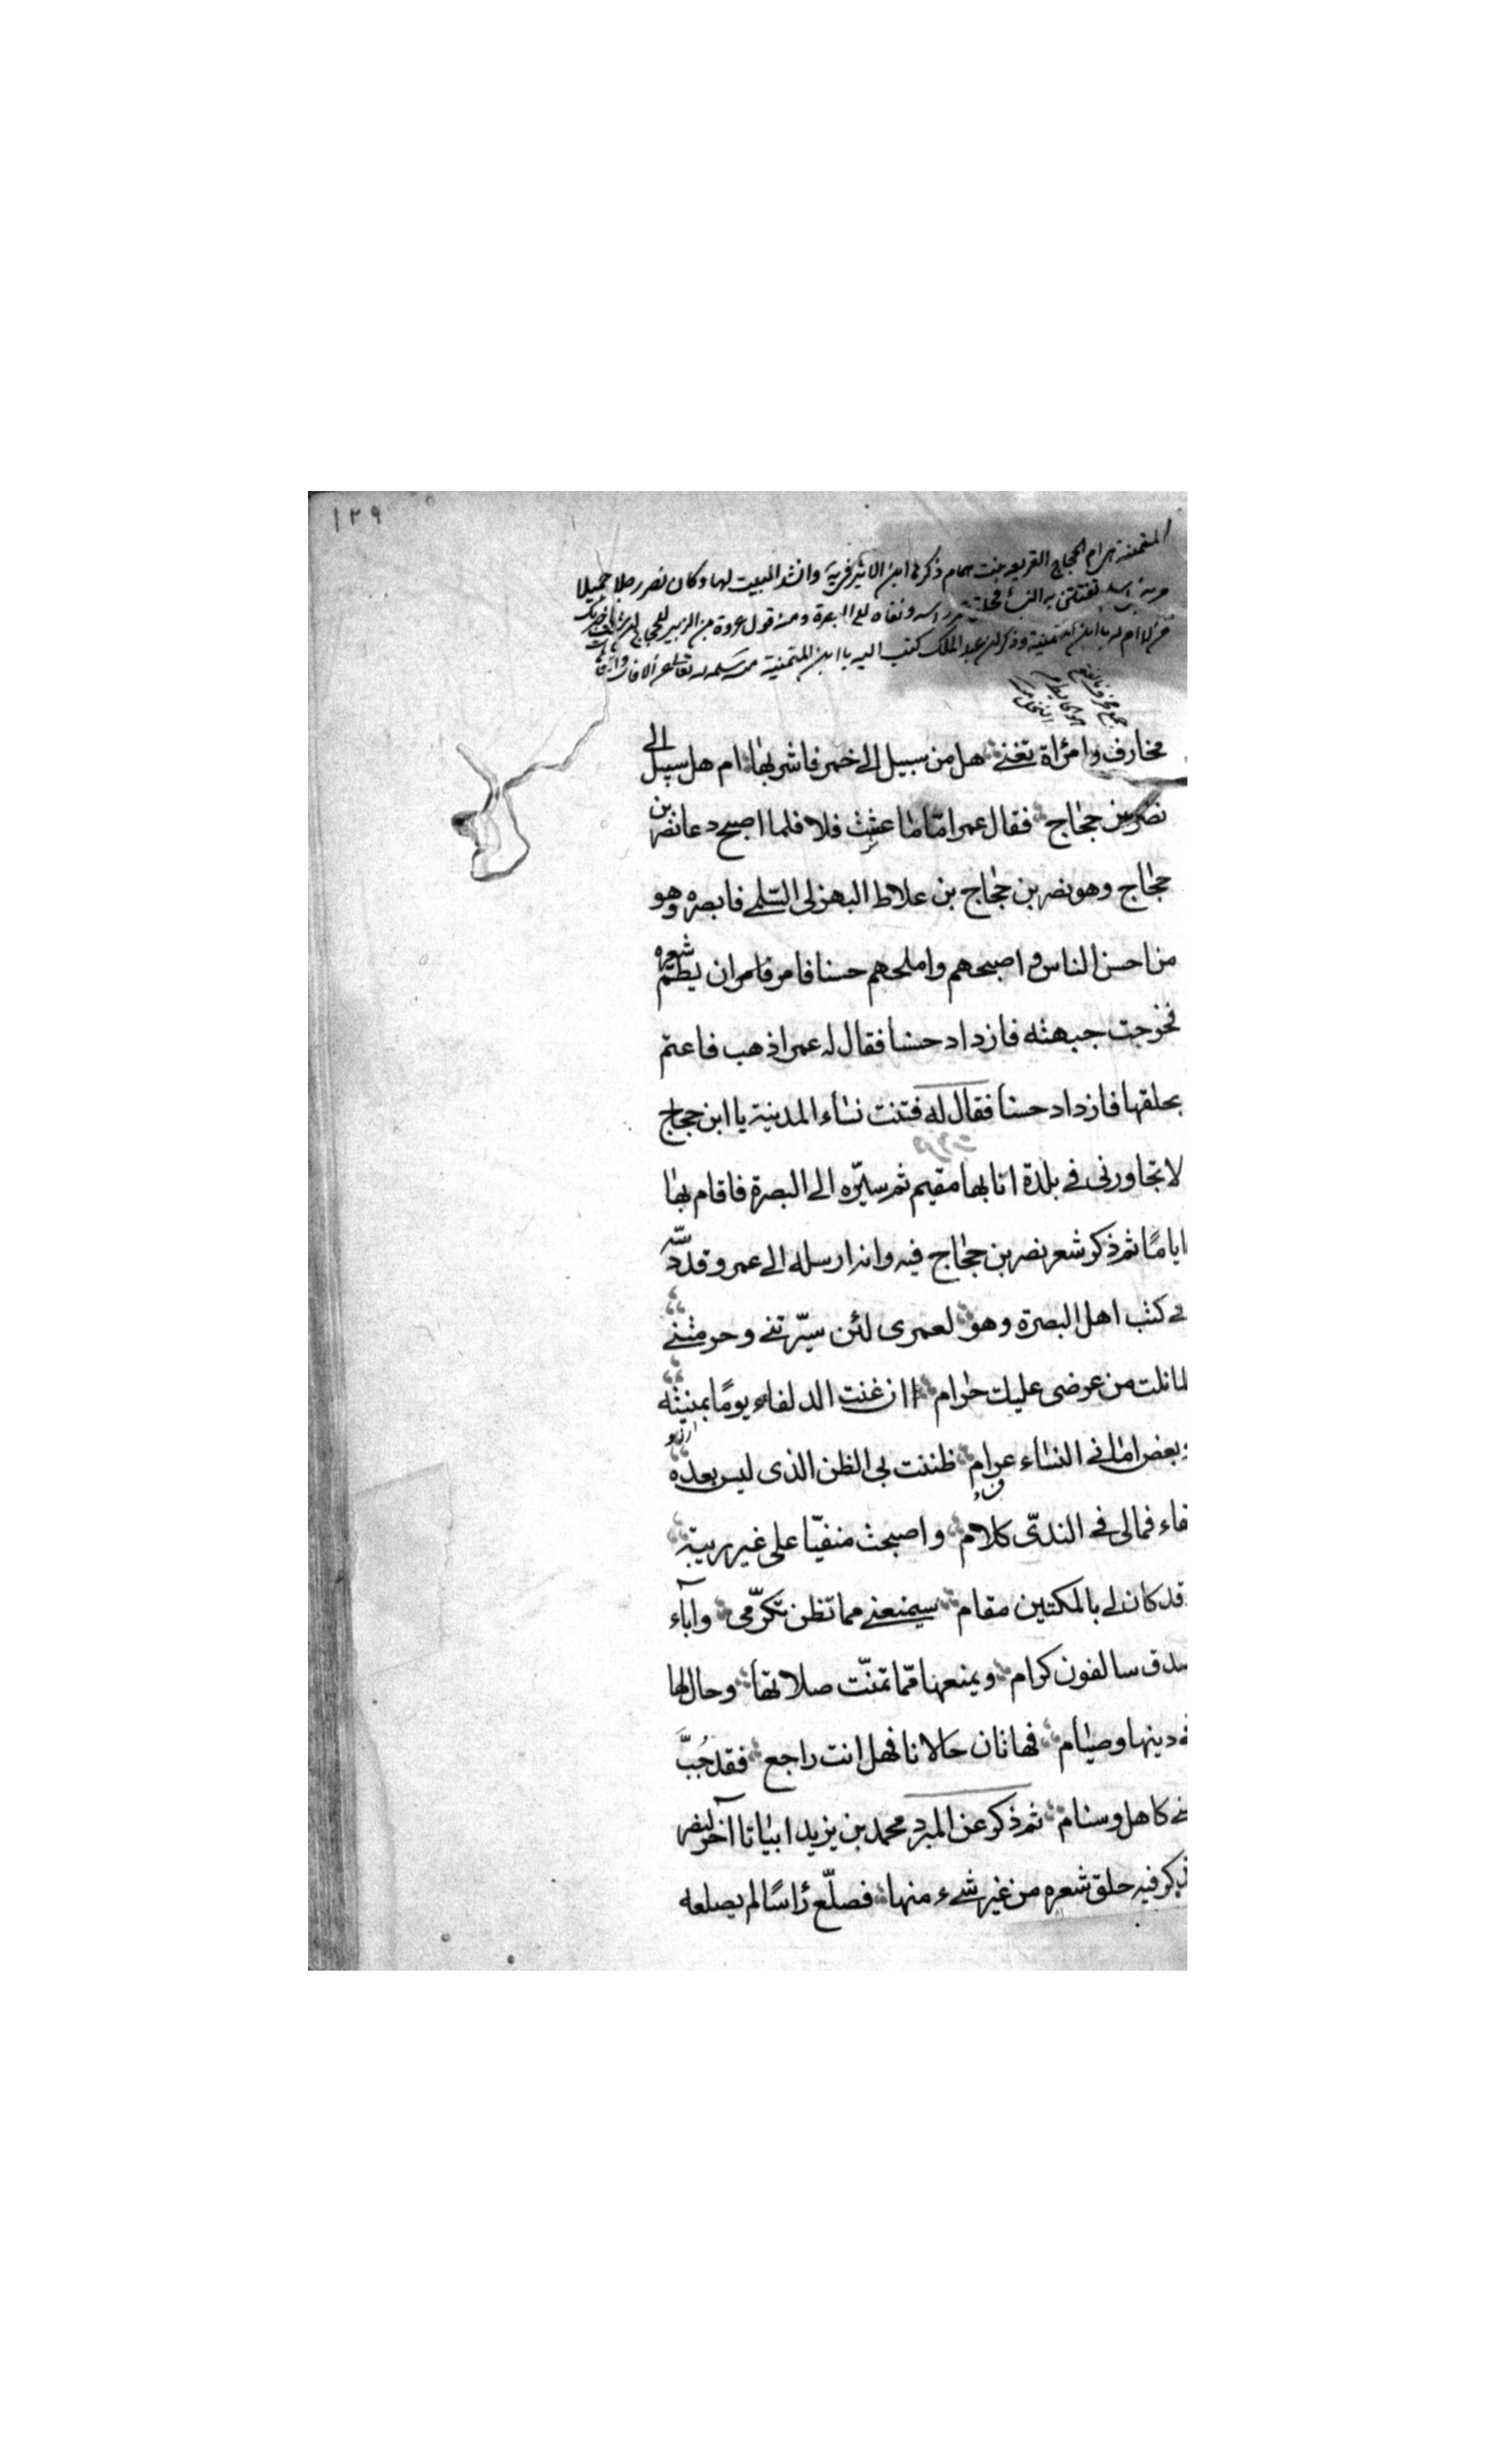 ١٢٩
المتمنية هي ام الحجاج الفريعه بنت همام ذكرها ابن الاثير وانشد البيت لها وكان نصر رجلا جميلا
تفتتن به النساء فحلق عمر راسه ونفاه الى البصرة ومنه قول عروة بن الزبير للحجاج
لا ام له يا ابن المتمنية وذكر عبد الملك كتب اليه يا ابن المتمنية
مخارف وامرأة تغني هل من سبيل الى خمر فاشربها ام هل سبيل الى
نصر بن حجاج فقال عمر امّا ما عشت فلا فلما اصبح دعا نصر بن
حجاج وهو نصر بن حجاج بن علاط البهزى السّلمي فابصره وهو
من احسن الناس و اصبحهم واملحهم حسنا فامر فامر ان يطمّ شعره
فخرجت جبهته فازداد حسنا فقال له عمر اذهب فاعتم
بحلقها فازداد حسنا فقال له فتنت نساء المدينة يا ابن حجاج
لا تجاورنى في بلدة انا بها مقيم ثم سيّره الى البصرة فاقام بها
اياما ثم ذكر شعر نصر بن حجاج فيه وانه ارسله الى عمر وقد دسّه
في كتب اهل البصرة وهو لعمرى لئن سيّرتني وحرمتني
لما نلت من عرضى عليك حرام اان غنت الدلفاء يومًا بمنيته
وبعض امانى النساء عرام ظننت بي الظن الذى ليس بعده
بقاء فمالى في الندىّ كلام واصبحت منفيّا على غير ريبة
وقد كان لي بالمكتين مقام سيمنعني مما تظن تكرّمى وآباء
صدق سالفون كرام ويمنعها ممّا تمنّت صلاتها وحال لها
في دينها وصيام فهاتان حالانا فهل انت راجع فقد جُبَّ
مني كاهل وسنام ثم ذكر عن المبرد محمد بن يزيد ابياتا اخر لنصر
يذكر فيه حلق شعره من غير شيء منها فصلّع رأسًا لم يصلعه